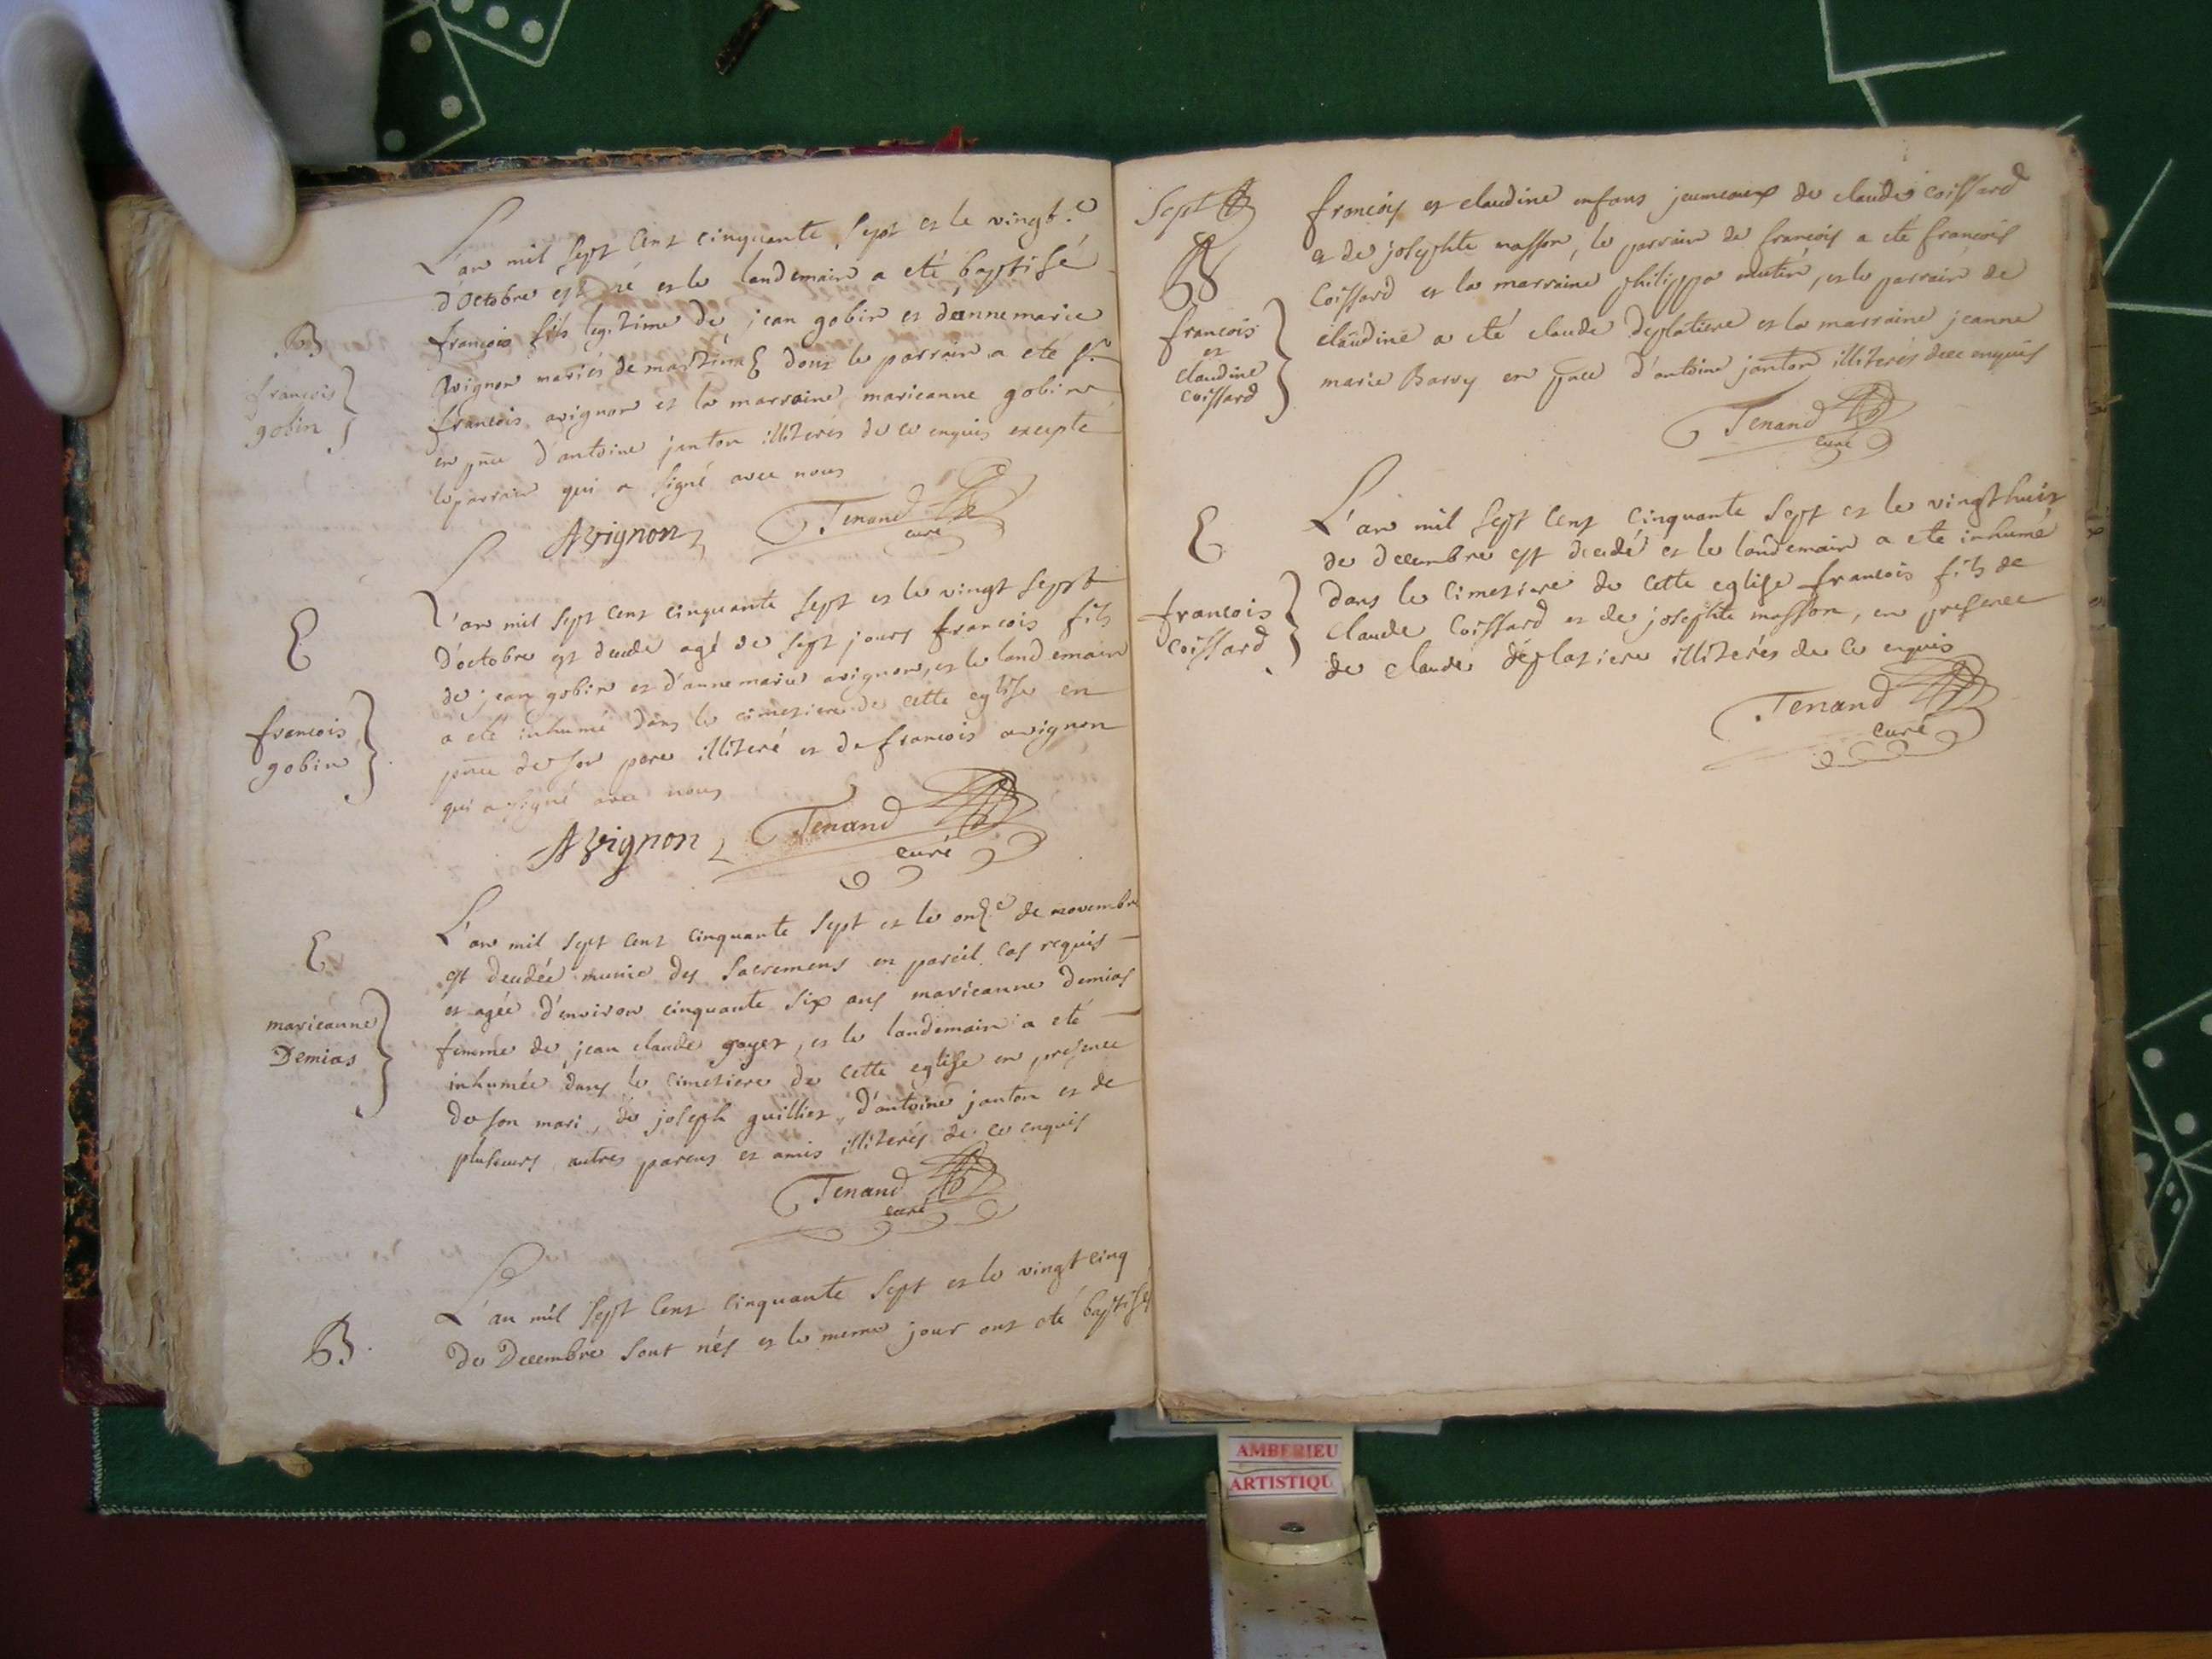 L'an mil sept cent cinquante sept et le vingt.e
d'octobre est né et le landemain a eté baptisé
B
françois
gobin
françois fils legitime de jean gobin et d'anne marie
avignon mariés de martinaz dont le parrain a eté sr.
francois avignon et la marraine marieanne gobin
en pnce d'antoine janton illiterés de ce enquis excepté
le parrain qui a signé avec nous
Avignon Tenand
curé
L'an mil sept cent cinquante sept et le vingt sept
E
d'octobre est decedé agé de sept jours francois fils
de jean gobin et d'anne marie avignon, et le landemain
françois
gobin
a eté inhumé dans le cimetiere de cette eglise en
pnce de son pere illiteré et de francois avignon
qui a signé avec nous
Avignon Tenand
curé
L'an mil sept cent cinquante sept et le onz.e de novembre
E
est decedée munie des sacremens en pareil cas requis
et agée d'environ cinquante six ans marieanne Demias
marieanne
Demias
femme de jean claude goyet, et le landemain a eté
inhumée dans le cimetiere de cette eglise en presence
de son mari, de joseph guillier, d'antoine janton et de
plusieurs autres parens et amis illiterés de ce enquis
Tenand
curé
L'an mil sept cent cinquante sept et le vingt cinq
B.
de Decembre sont nés et le meme jour ont eté baptisés
Sept
B
françois
et
claudine
coissard
francois et claudine enfans jeumeaux de claude coissard
et de josephte masson, le parrain de francois a eté francois
coissard et la marraine philippa mutin, et le parrain de
claudine a eté claude deplatiere et la marraine jeanne
marie Barry en pnce d'antoine janton illiterés de ce enquis
Tenand
curé
E
francois
coissard
L'an mil sept cent cinquante sept et le vingt huit
de decembre est decedé et le landemain a eté inhumé
dans le cimetiere de cette eglise francois fils de
claude coissard et de josephte masson, en presence
de claude déplatiere illiterés de ce enquis
Tenand
curé
AMBERIEU
ARTISTIQU